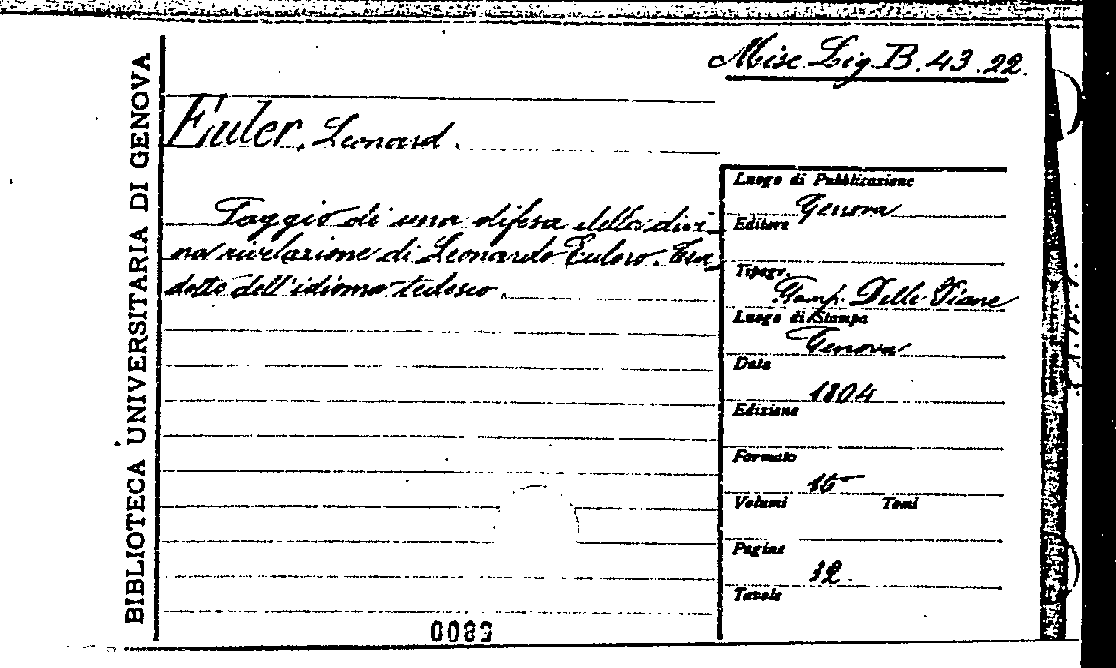 Misc. Lig. B. 43. 22.
BIBLIOTECA UNIVERSITARIA DI GENOVA
Euler, Leonard.
Saggio di una difesa della divi-
na rivelazione di Leonardo Eulero. Tra-
dotto dell'idioma tedesco.
Luogo di Pubblicazione
Genova
Editore
Tipogr.
Stamp. Delle Piane
Luogo di Stampa
Genova
Data
1804
Edizione
Formato
Volumi Tomi
Pagine
Tavole